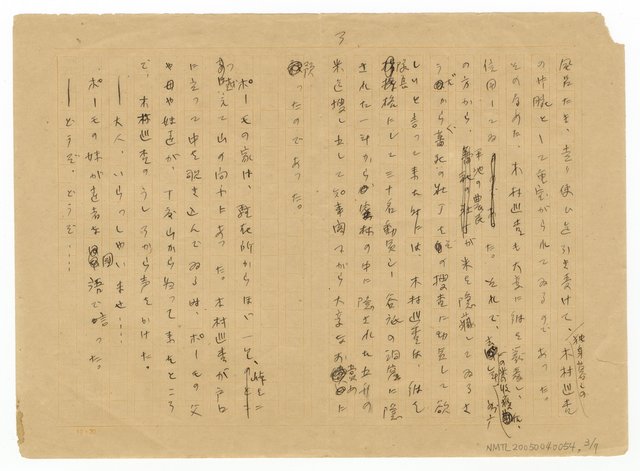 3
風呂たき、走り使ひを引き受けて、独身暮しの木村巡査
の片腕として重宝がられてゐるのであった。
そのため、木村巡査も大変に彼を
信用してゐた。それで、
の方から、平地の農民が米を隠蔵してゐるさ
うだから蕃社の壮丁を捜査に動員して欲
しいと言って来た時には、木村巡査は、彼を
隊長にして三十名動員し、谷底の洞窟に隠
された一斗から密林の中に隠された五斗の
米を捜し出して知事閣下から大変なお賞めに
預ったのであった。
ポーモの家は、駐在所からほい一つ、峰を二
つ越えて山の向ふにあった。木村巡査が戸口
に立って中を覗き込んでゐる時、ポーモの父
や母や妹達が、丁度山から匆って来たところ
で、木村巡査のうしろから声をかけた。
――大人、いらっしゃいませ……
ポーモの妹が達者な国語で言った。
――どうぞ、どうぞ……
NMTL20050040054, 3/7